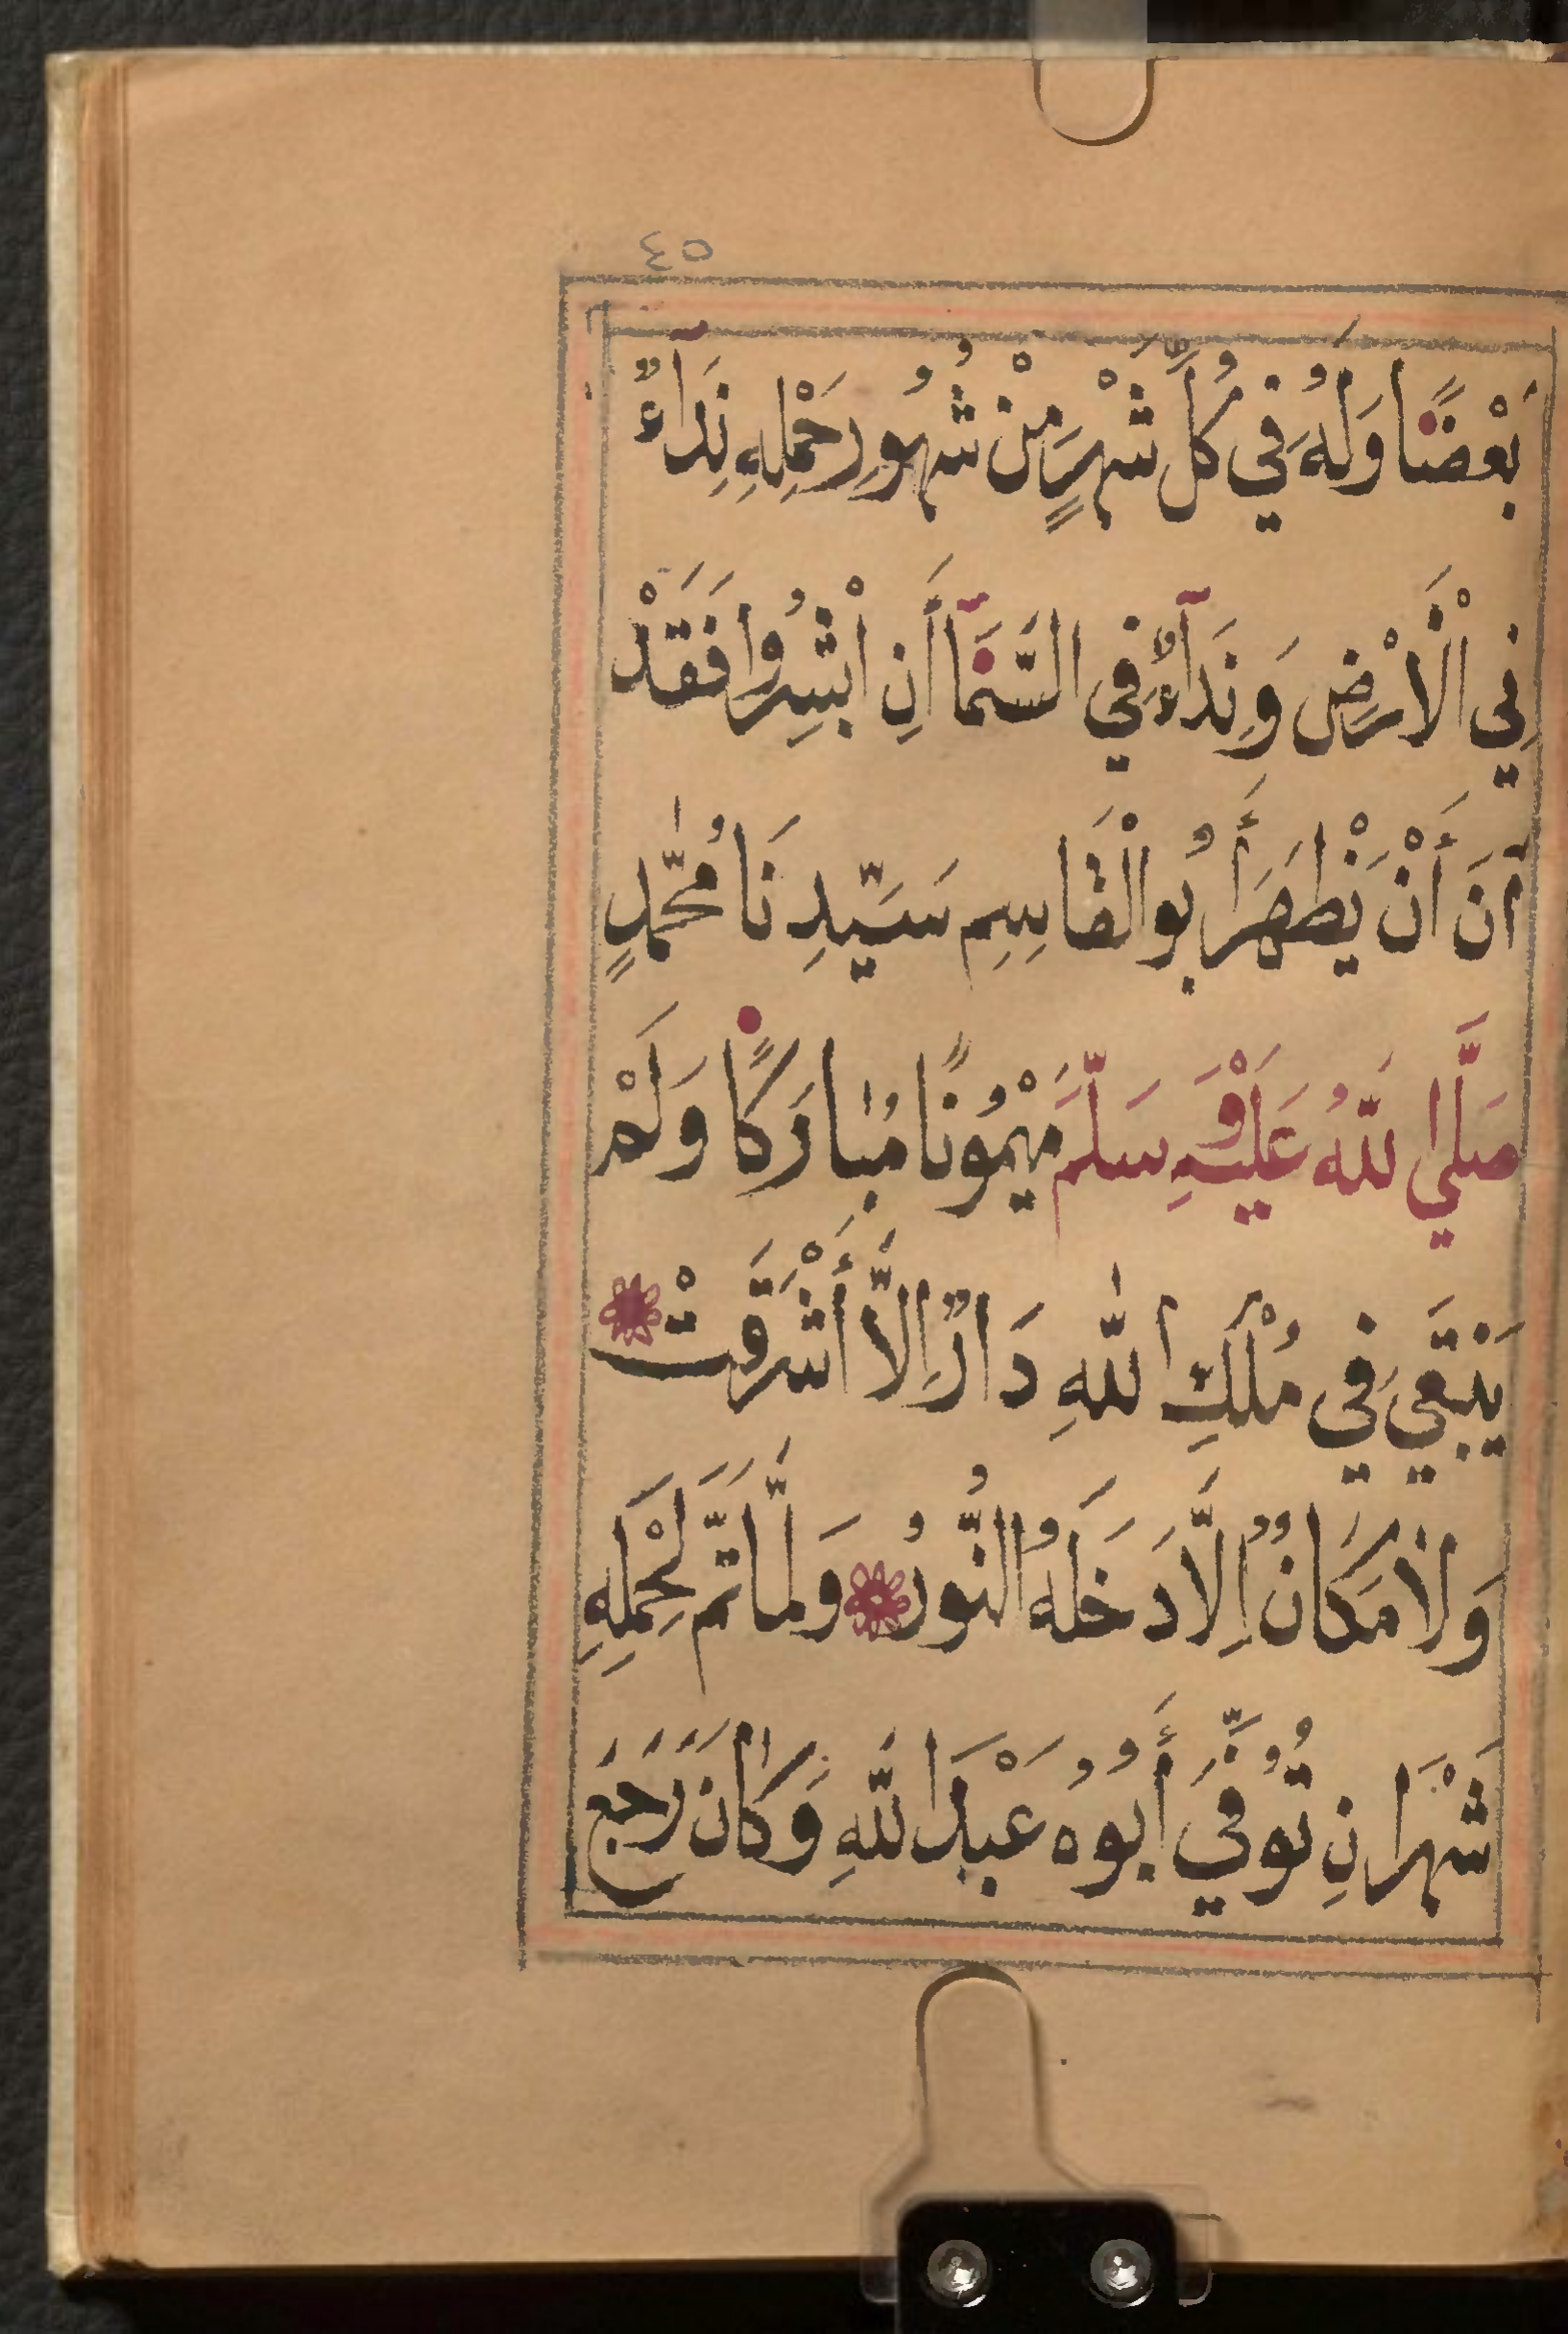 ٤٥
بَعْضًا وَلَهُ فِي كُلِّ شَهْرٍ مِنْ شُهُورِ حَمْلِهِ نِدَآءٌ
فِي الْأَرْضِ وَنِدَآءٌ فِي السَّمَآ أَنِ ابْشِرُوا فَقَدْ
آنَ أَنْ يَظْهَرَ أَبُو الْقَاسِمِ سَيِّدِنَا مُحَمَّدٍ
صَلَّي اللَّهُ عَلَيْهِ وَسَلَّمَ مَيْمُونًا مُبَارَكًا وَلَمْ
يَبْقَي فِي مُلْكِ اللَّهِ دَارٌ اِلَّا أَشْرَقَتْ
وَلَا مَكَانٌ اِلَّا دَخَلَهُ النُّورُ وَلَمَّا تَمَّ لِحَمْلِهِ
شَهْرَانِ تُوُفِّيَ أَبُوُه عَبْدَ اللَّهِ وَكَانَ رَجَعَ